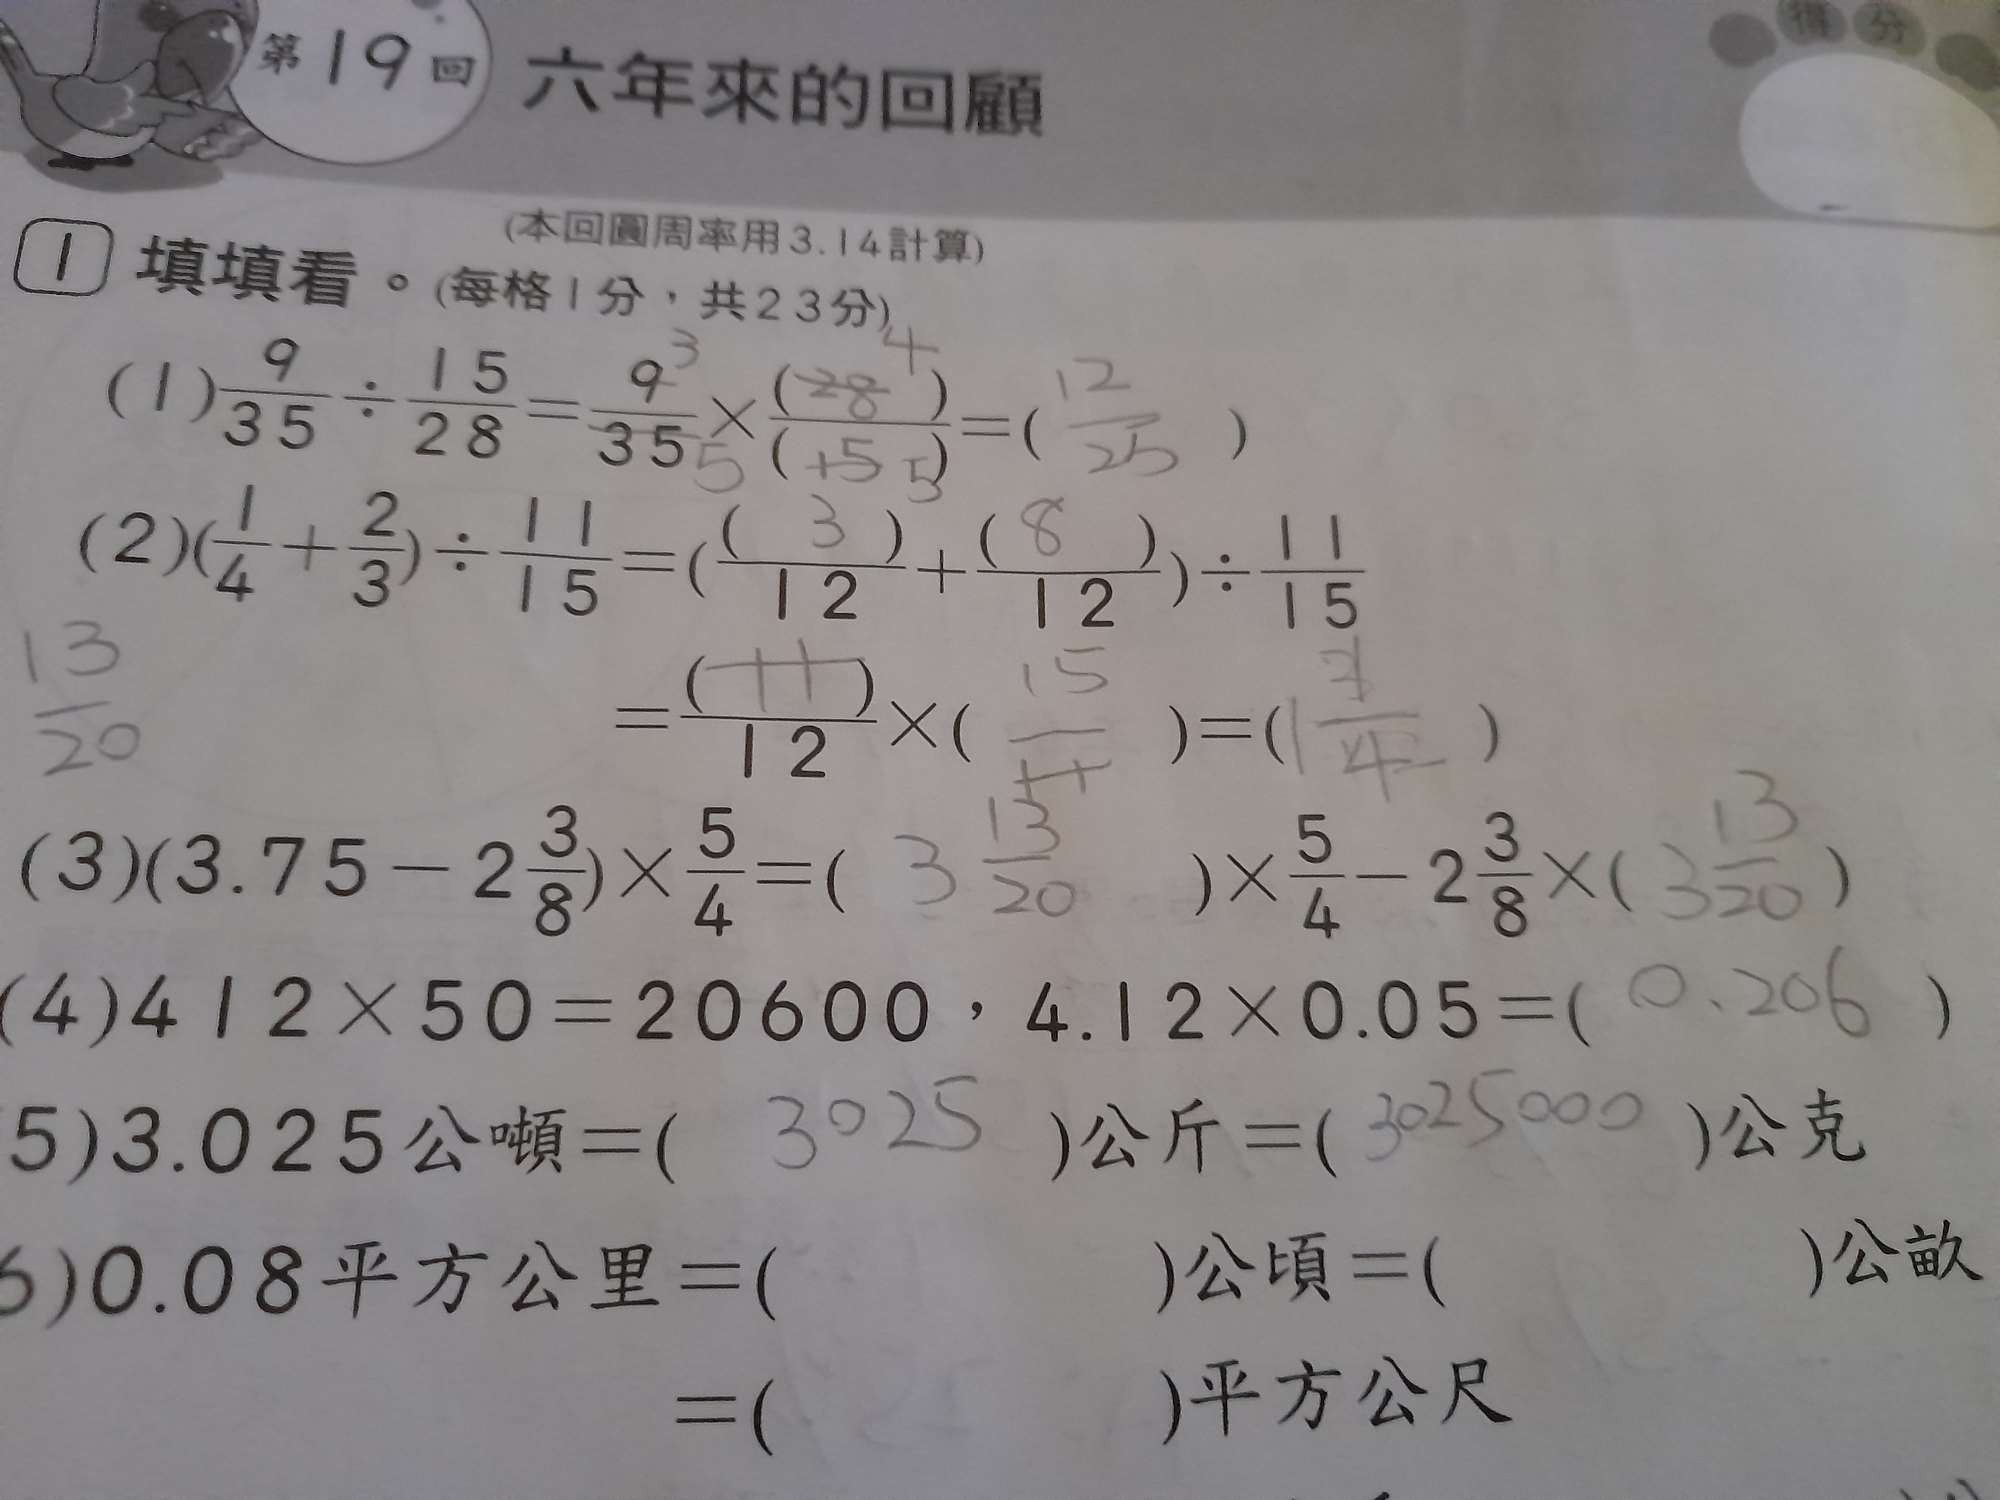 第19回 六年來的回顧 得分
(本回圓周率用3.14計算)
1 填填看。(每格1分，共23分)
(1) 9/35 ÷ 15/28 = 9/35 3 5 × (28)/(15) 4 5 = ( 12/25 )
(2)(1/4 + 2/3) ÷ 11/15 = (( 3 )/12 + ( 8 )/12) ÷ 11/15
13/20
= ( 11 )/12 × ( 15/11 ) = ( 1 /4 )
(3)(3.75 - 2 3/8) × 5/4 = ( 3 13/20 ) × 5/4 - 2 3/8 × ( 3 13/20 )
(4)412×50=20600，4.12×0.05=( 0.206 )
5)3.025公噸=( 3025 )公斤=( 3025000 )公克
6)0.08平方公里=( )公頃=( )公畝
=( )平方公尺